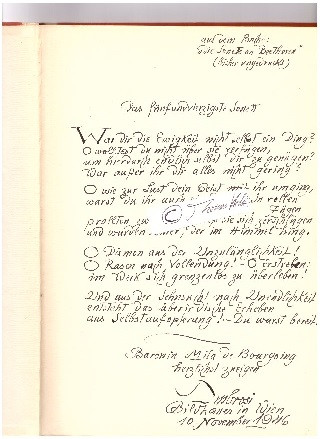 aus dem Buche:
die Sonette an "Beethoven"
(bisher ungedruckt)
Das fünfundvierzigste Sonett
War dir die Ewigkeit nicht selbst ein Ding?
O wolltest du nicht über sie verfügen,
um hierdurch endlich selbst dir zu genügen?
War außer ihr dir alles nicht gering?
O wie zur Lust dein Geist mit ihr umging,
warst du ihr auch in vollen
Zügen
prallten zwei sie sich
und wurden der im Himmel hing.
O Dämon aus der Unzulänglichkeit!
O Rasen nach Vollendung! O Erstreben:
im Werk sich grenzenlos zu überleben!
Und aus der Sehnsucht nach Unendlichkeit
entsteht das überirdische Erheben
aus Selbstaufopferung! - Du warst bereit.
Baronin Mila de Bourgoing
herzlichst zueigen
Ambrosi
Bildhauer in Wien
10 November 1946